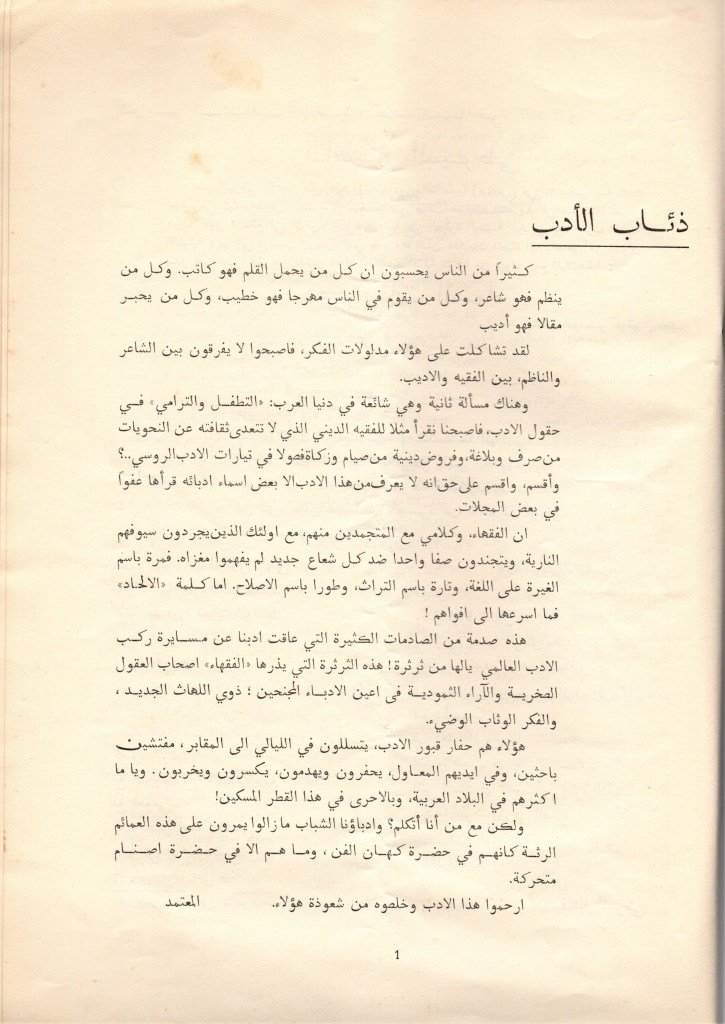 ذئاب الأدب
كثيراً من الناس يحسبون ان كل من يحمل القلم فهو كاتب. وكل من
ينظم فهو شاعر، وكل من يقوم في الناس مهرجا فهو خطيب، وكل من يحبر
مقالا فهو أديب
لقد تشاكلت على هؤلاء مدلولات الفكر، فاصبحوا لا يفرقون بين الشاعر
والناظم، بين الفقيه والاديب.
وهناك مسألة ثانية وهي شائعة في دنيا العرب: «التطفل والترامي» في
حقول الادب، فاصبحنا نقرأ مثلا للفقيه الديني الذي لا تتعدى ثقافته عن النحويات
من صرف وبلاغة، وفروض دينية من صيام وزكاة فصولا في تيارات الادب الروسي..؟
وأقسم، واقسم على حق انه لا يعرف من هذا الادب الا بعض اسماء ادبائه قرأها عفواً
في بعض المجلات.
ان الفقهاء، وكلامي مع المتجمدين منهم، مع اولئك الذين يجردون سيوفهم
النارية، ويتجندون صفا واحدا ضد كل شعاع جديد لم يفهموا مغزاه. فمرة باسم
الغيرة على اللغة، وتارة باسم التراث، وطورا باسم الاصلاح. اما كلمة «الالحاد»
فما اسرعها الى افواهم !
هذه صدمة من الصادمات الكثيرة التي عاقت ادبنا عن مسايرة ركب
الادب العالمي يالها من ثرثرة! هذه الثرثرة التي يذرها «الفقهاء» اصحاب العقول
الصخرية والآراء الثمودية فى اعين الادباء المجنحين ؛ ذوي اللهاث الجديد ،
والفكر الوثاب الوضيء.
هؤلاء هم حفار قبور الادب، يتسللون في الليالي الى المقابر، مفتشين
باحثين، وفي ايديهم المعاول، يحفرون ويهدمون، يكسرون ويخربون. ويا ما
اكثرهم في البلاد العربية، وبالاحرى في هذا القطر المسكين!
ولكن مع من أنا أتكلم؟ وادباؤنا الشباب ما زالوا يمرون على هذه العمائم
الرثة كانهم في حضرة كهان الفن ، وما هم الا في حضرة اصنام
متحركة.
ارحموا هذا الادب وخلصوه من شعوذة هؤلاء. المعتمد
1